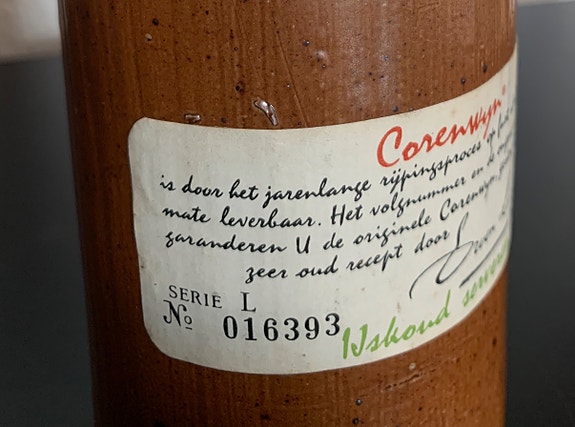 Corenwyn®
is door het jarenlange rijpingsproces op
mate leverbaar. Het volgnummer en de
garanderen U de originele Corenwyn,
zeer oud recept door
SERIE L
No 016393
IJskoud